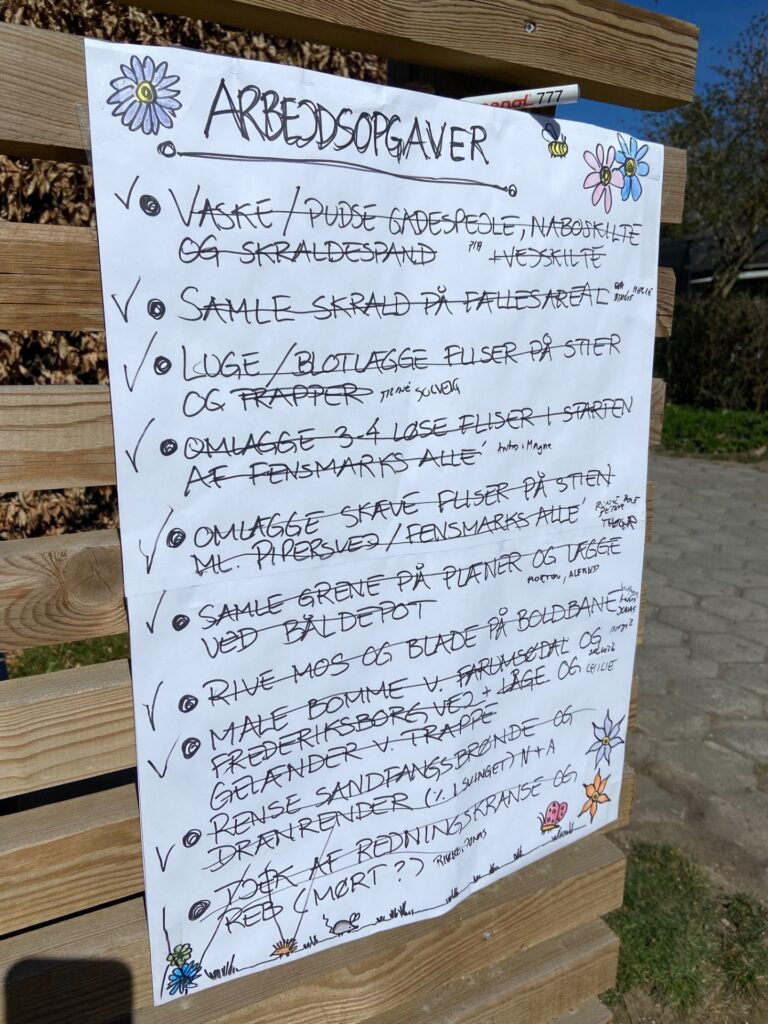 777
ARBEJDSOPGAVER
VASKE / PUDSE GADESPEJLE, NABOSKILTE
OG SKRALDESPAND PIA +VEJSKILTE
SAMLE SKRALD PÅ FÆLLESAREAL
LUGE / BLOTLÆGGE FLISER PÅ STIER
OG TRAPPER SOLVEIG
OMLÆGGE 3-4 LØSE FLISER I STARTEN
AF FENSMARKS ALLE´
OMLÆGGE SKÆVE FLISER PÅ STIEN
ML. PIPERSVEJ / FENSMARKS ALLE´
SAMLE GRENE PÅ PLÆNER OG LÆGGE
VED BÅLDEPOT MORTEN, ALFRED
RIVE MOS OG BLADE PÅ BOLDBANE JONAS
MALE BOMME V. FARUMSØDAL OG
FREDERIKSBORGVEJ + LÅGE OG
GELÆNDER V. TRAPPE
RENSE SANDFANGSBRØNDE OG
DRÆNRENDER (% I SVINGET) N + A
TJEK AF REDNINGSKRANSE OG
REB (MØRT?) RIKKE, JONAS